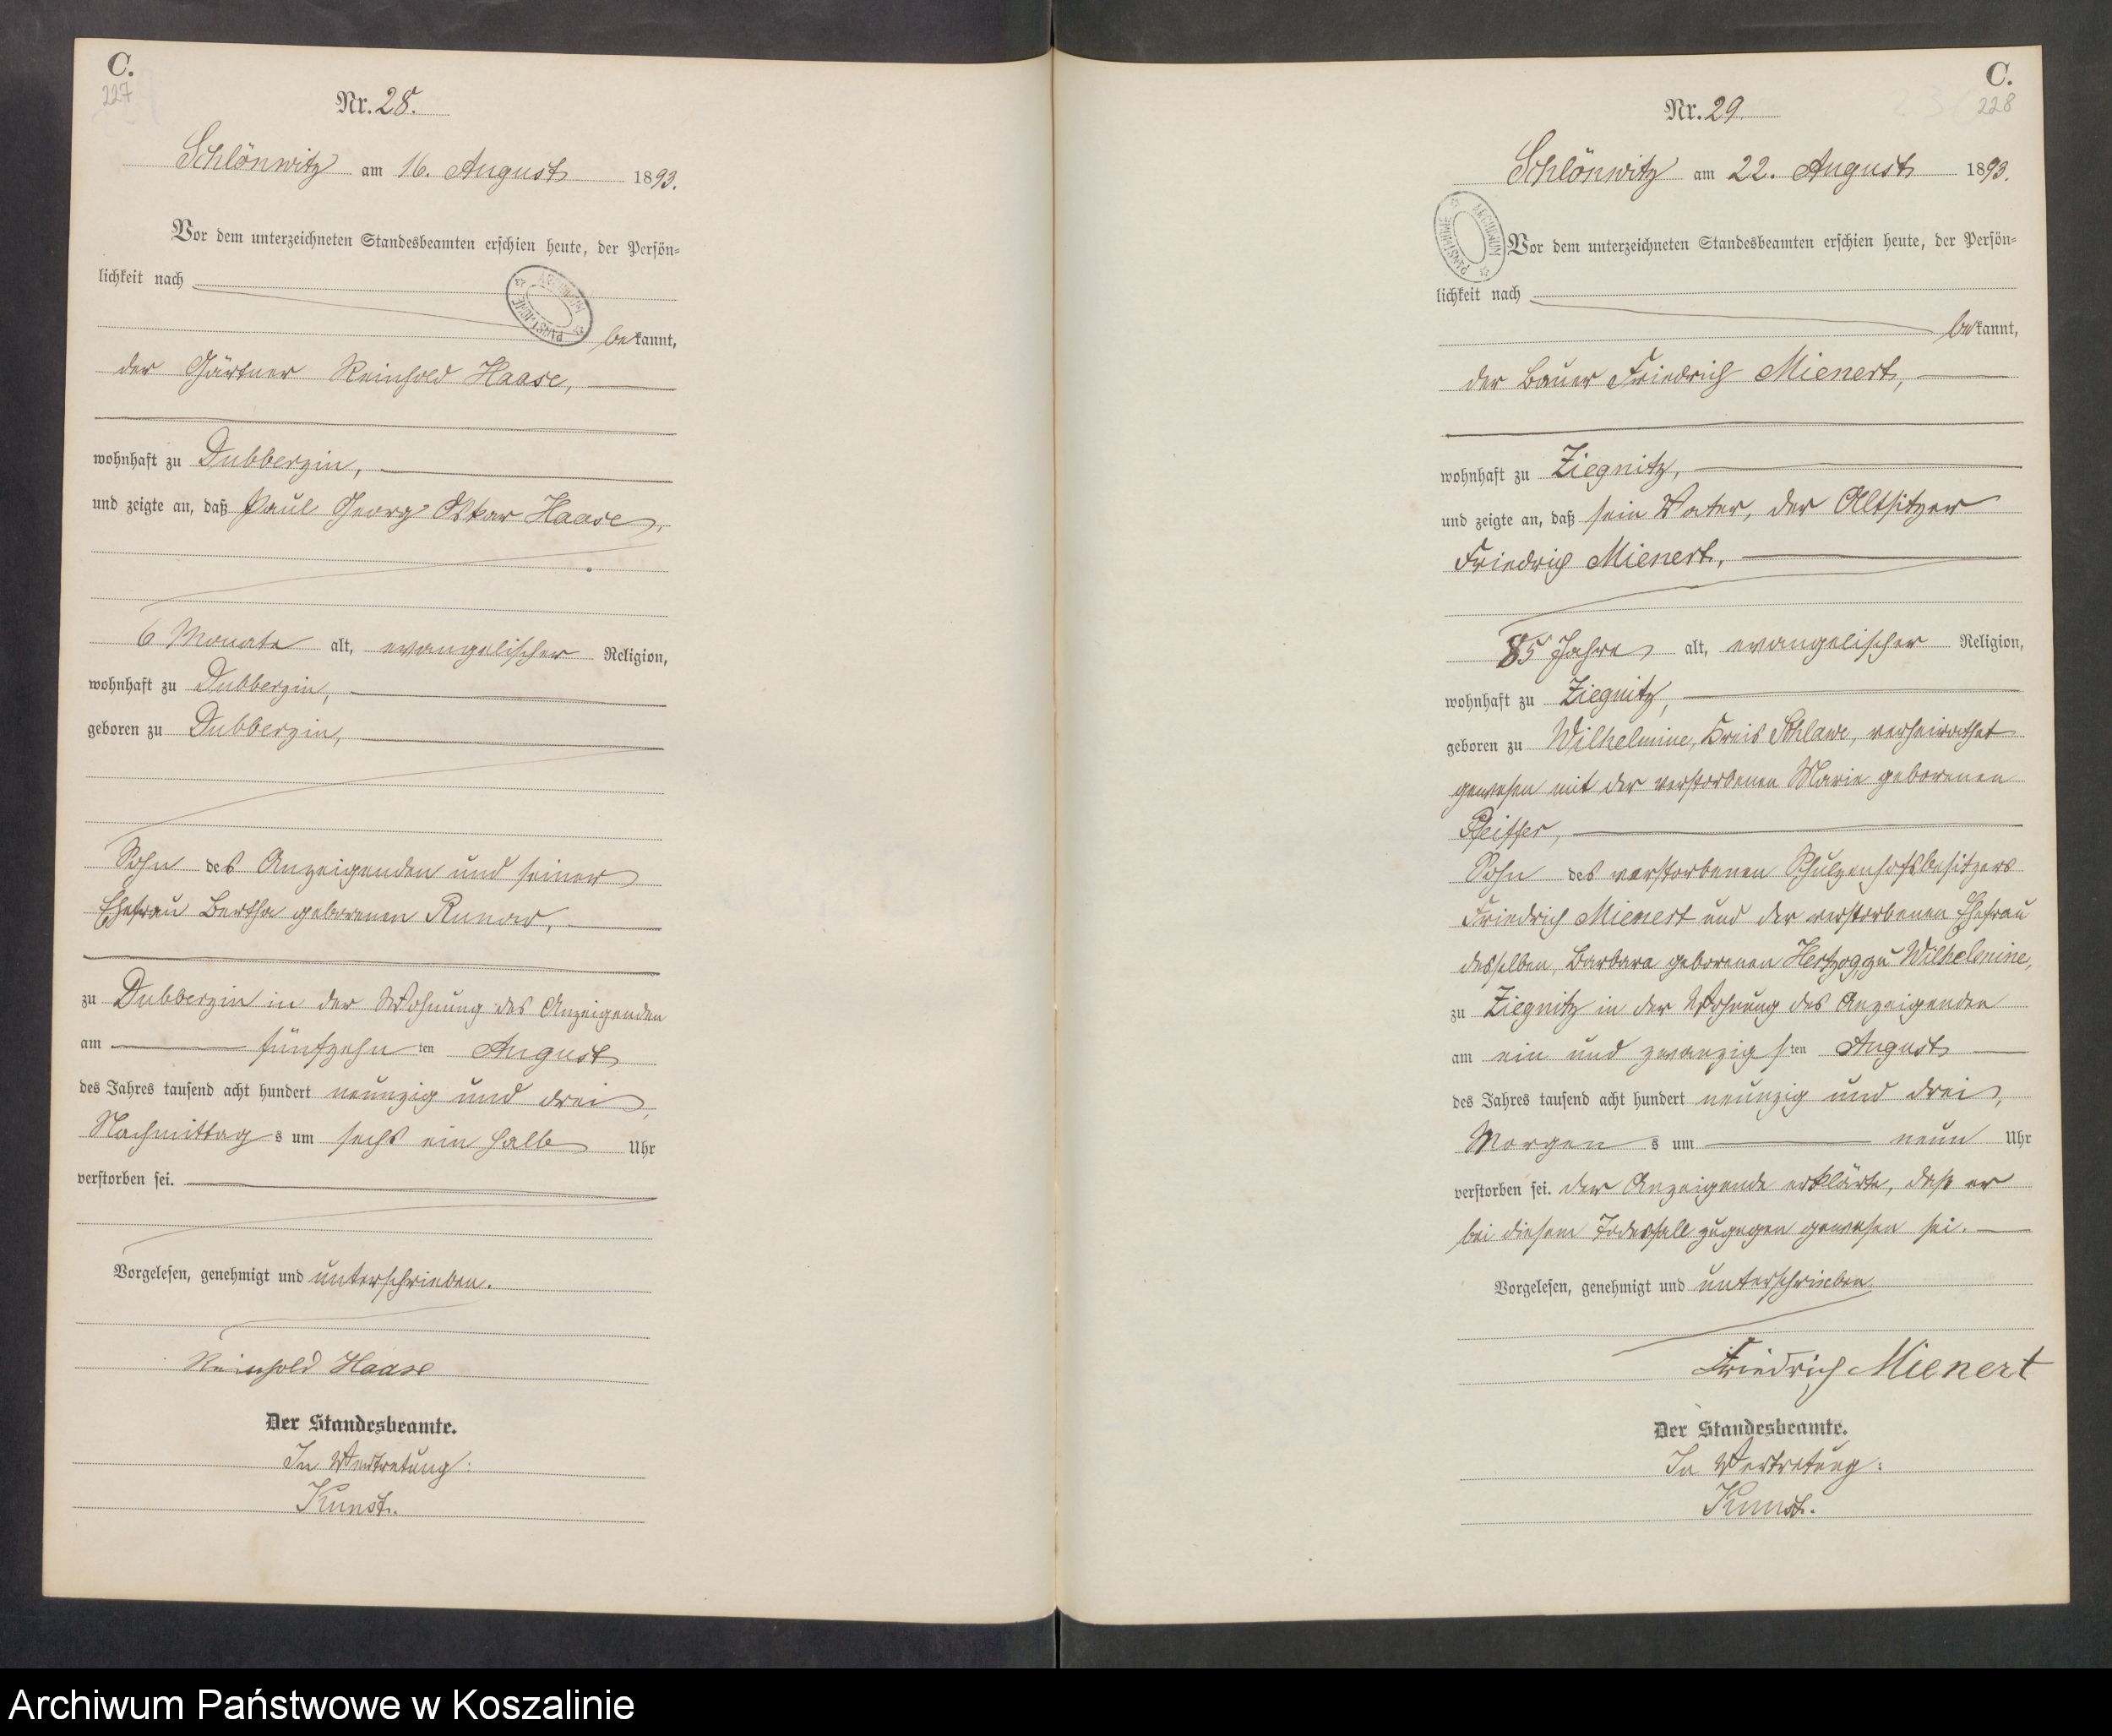 C.
227
Nr. 28.
Schlönwitz am 16. August 1893.
Vor dem unterzeichneten Standesbeamten erschien heute, der Persön-
lichkeit nach
bekannt,
der Gärtner Reinhold Haase,
wohnhaft zu Dubberzin,
und zeigte an, daß Paul Georg Oskar Haase,
6 Monate alt, evangelischer Religion,
wohnhaft zu Dubberzin,
geboren zu Dubberzin,
Sohn des Anzeigenden und seiner
Ehefrau Bertha geborenen Runow,
zu Dubberzin in der Wohnung des Anzeigenden
am fünfzehnten August
des Jahres tausend acht hundert neunzig und drei,
Nachmittags um sechs ein halb Uhr
verstorben sei.
Vorgelesen, genehmigt und unterschrieben.
Reinhold Haase
Der Standesbeamte.
In Vertretung:
Kunst.
C.
228
Nr. 29.
Schlönwitz am 22. August 1893.
ARCHIWUM PAŃSTWOWE
Vor dem unterzeichneten Standesbeamten erschien heute, der Persön-
lichkeit nach
bekannt,
der Bauer Friedrich Mienert,
wohnhaft zu Ziegnitz,
und zeigte an, daß sein Vater, der Altsitzer
Friedrich Mienert,
85 Jahre alt, evangelischer Religion,
wohnhaft zu Ziegnitz,
geboren zu Wilhelmine, Kreis Schlawe, verheirathet
gewesen mit der verstorbenen Marie geborenen
Pfeiffer,
Sohn des verstorbenen Schulzenhofsbesitzers
Friedrich Mienert und der verstorbenen Ehefrau
desselben, Barbara geborenen Hertzog zu Wilhelmine,
zu Ziegnitz in der Wohnung des Anzeigenden
am ein und zwanzigsten August
des Jahres tausend acht hundert neunzig und drei,
Morgens um neun Uhr
verstorben sei. der Anzeigende erklärte, daß er
bei diesem Todesfall zugegen gewesen sei.
Vorgelesen, genehmigt und unterschrieben
Friedrich Mienert
Der Standesbeamte.
In Vertretung:
Kunst.
Archiwum Państwowe w Koszalinie